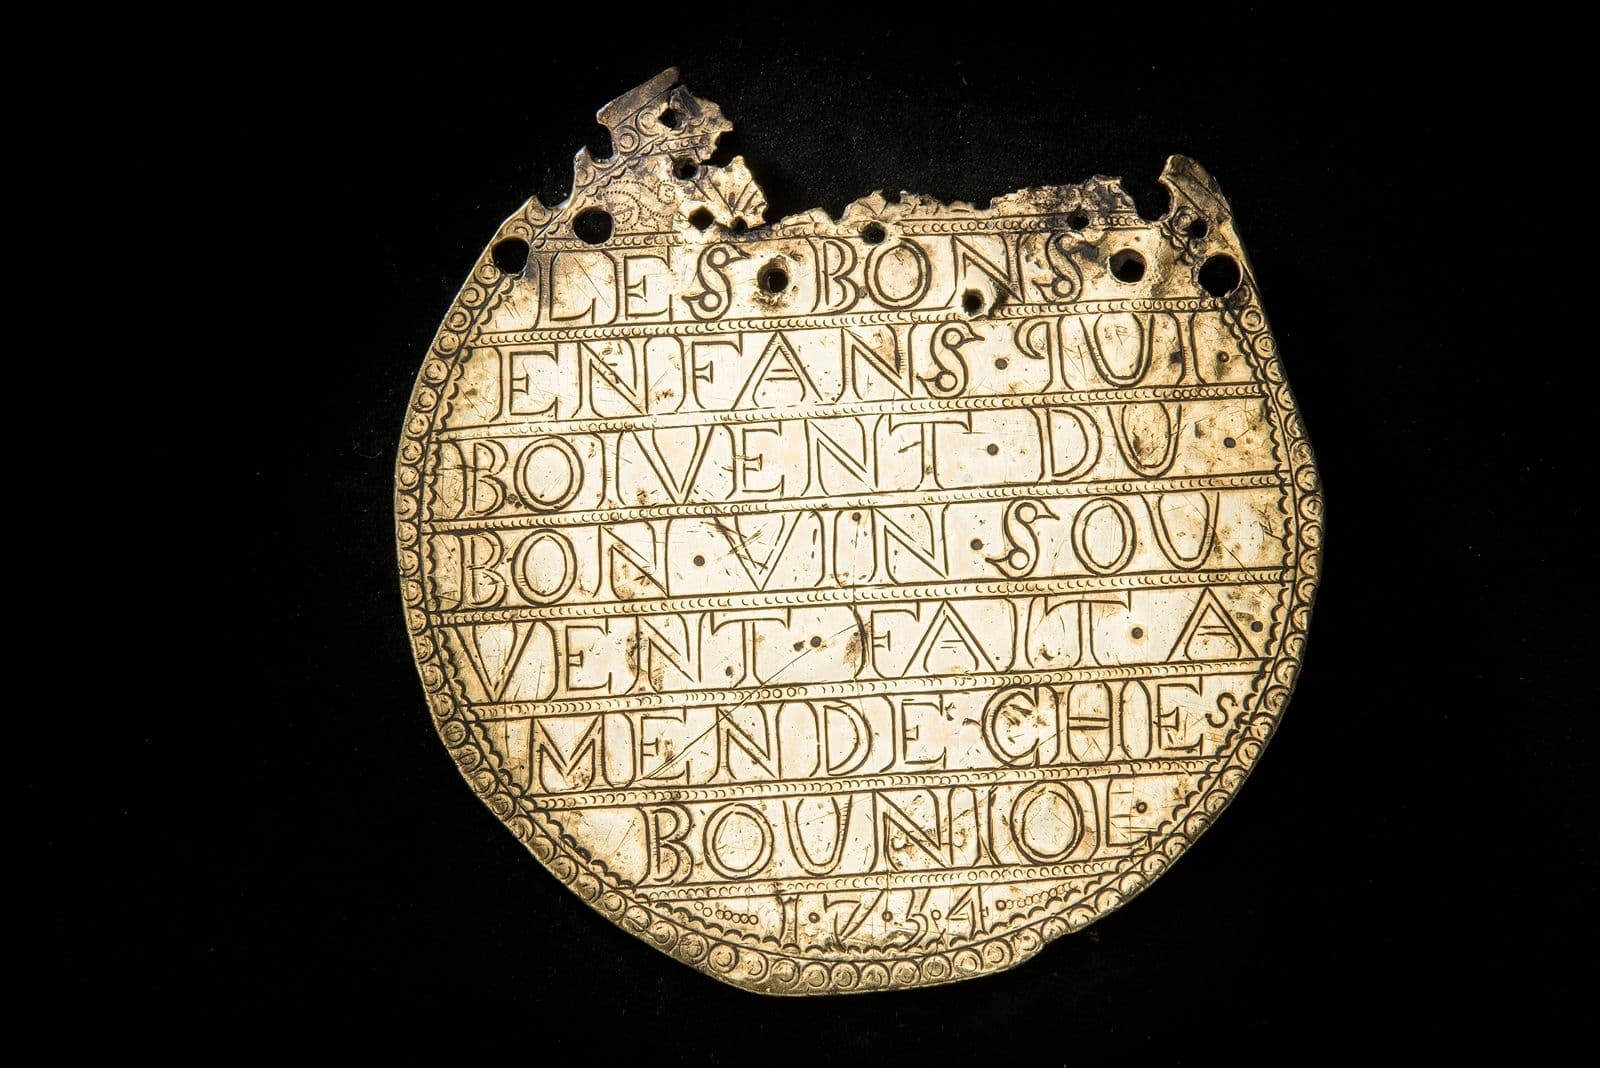 LES BONS
ENFANS · QUI
BOIVENT · DU ·
BON · VIN · SOU
VENT · FAIT · A ·
MENDE CHES
BOUNIOL ·
1·7·3·4